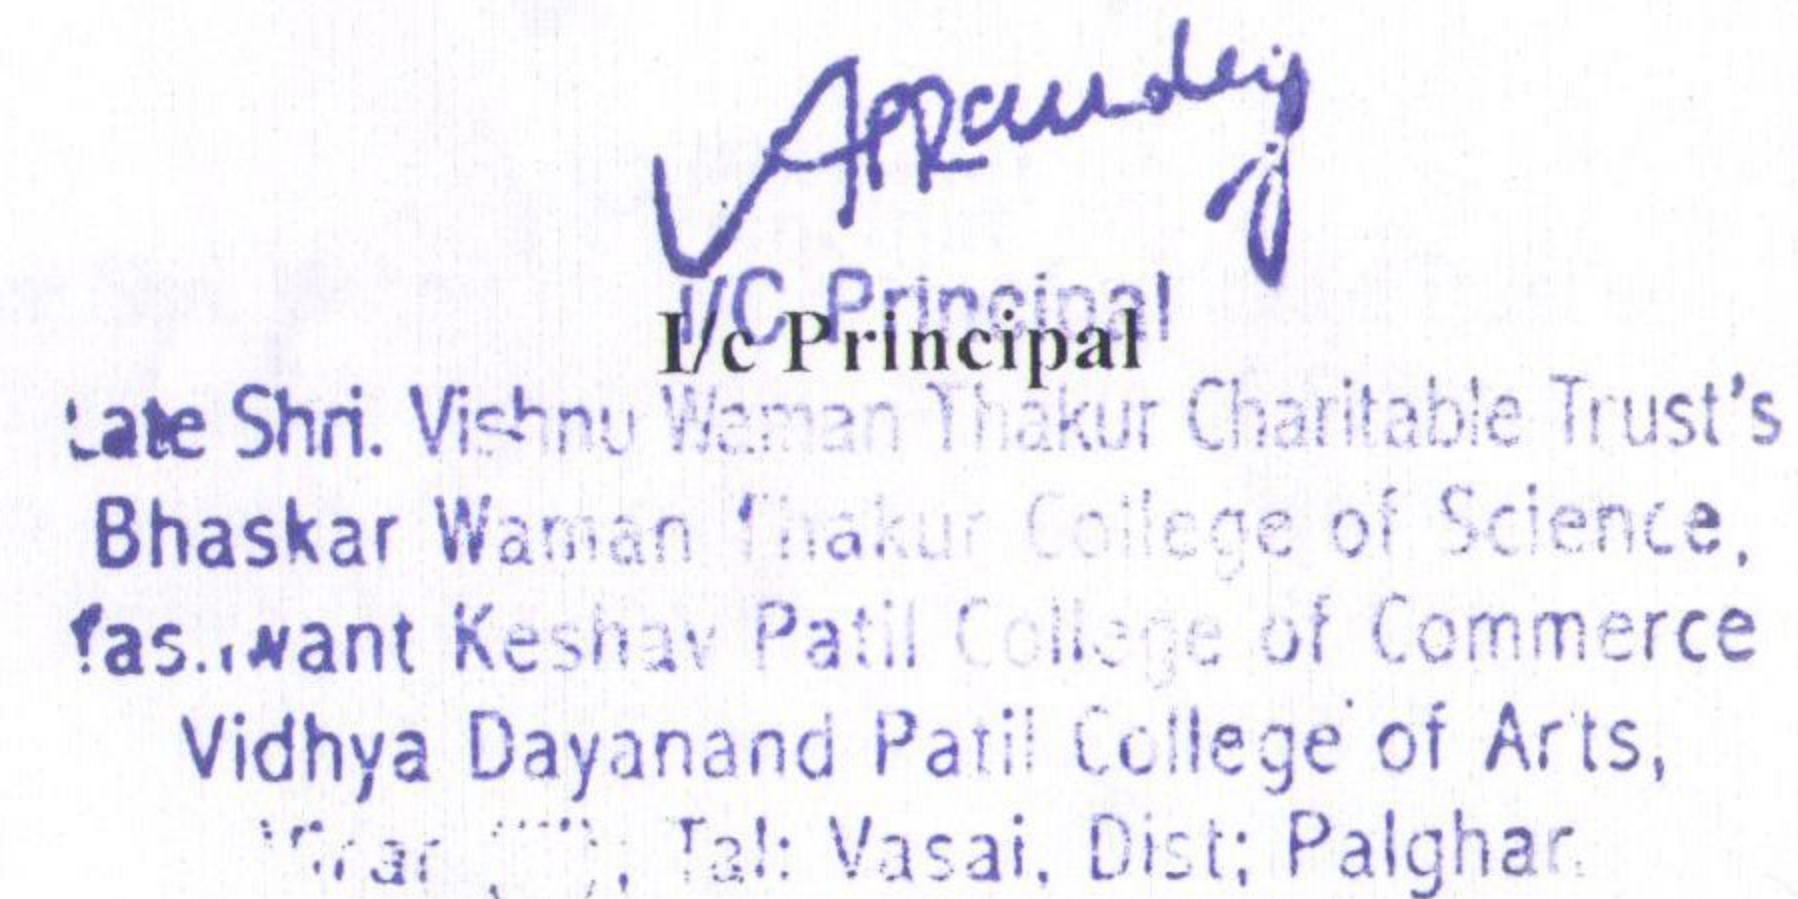 I/C Principal
I/c Principal
Late Shri. Vishnu Waman Thakur Charitable Trust's
Bhaskar Waman Thakur College of Science,
Yashwant Keshav Patil College of Commerce
Vidhya Dayanand Patil College of Arts,
Tal: Vasai, Dist; Palghar.